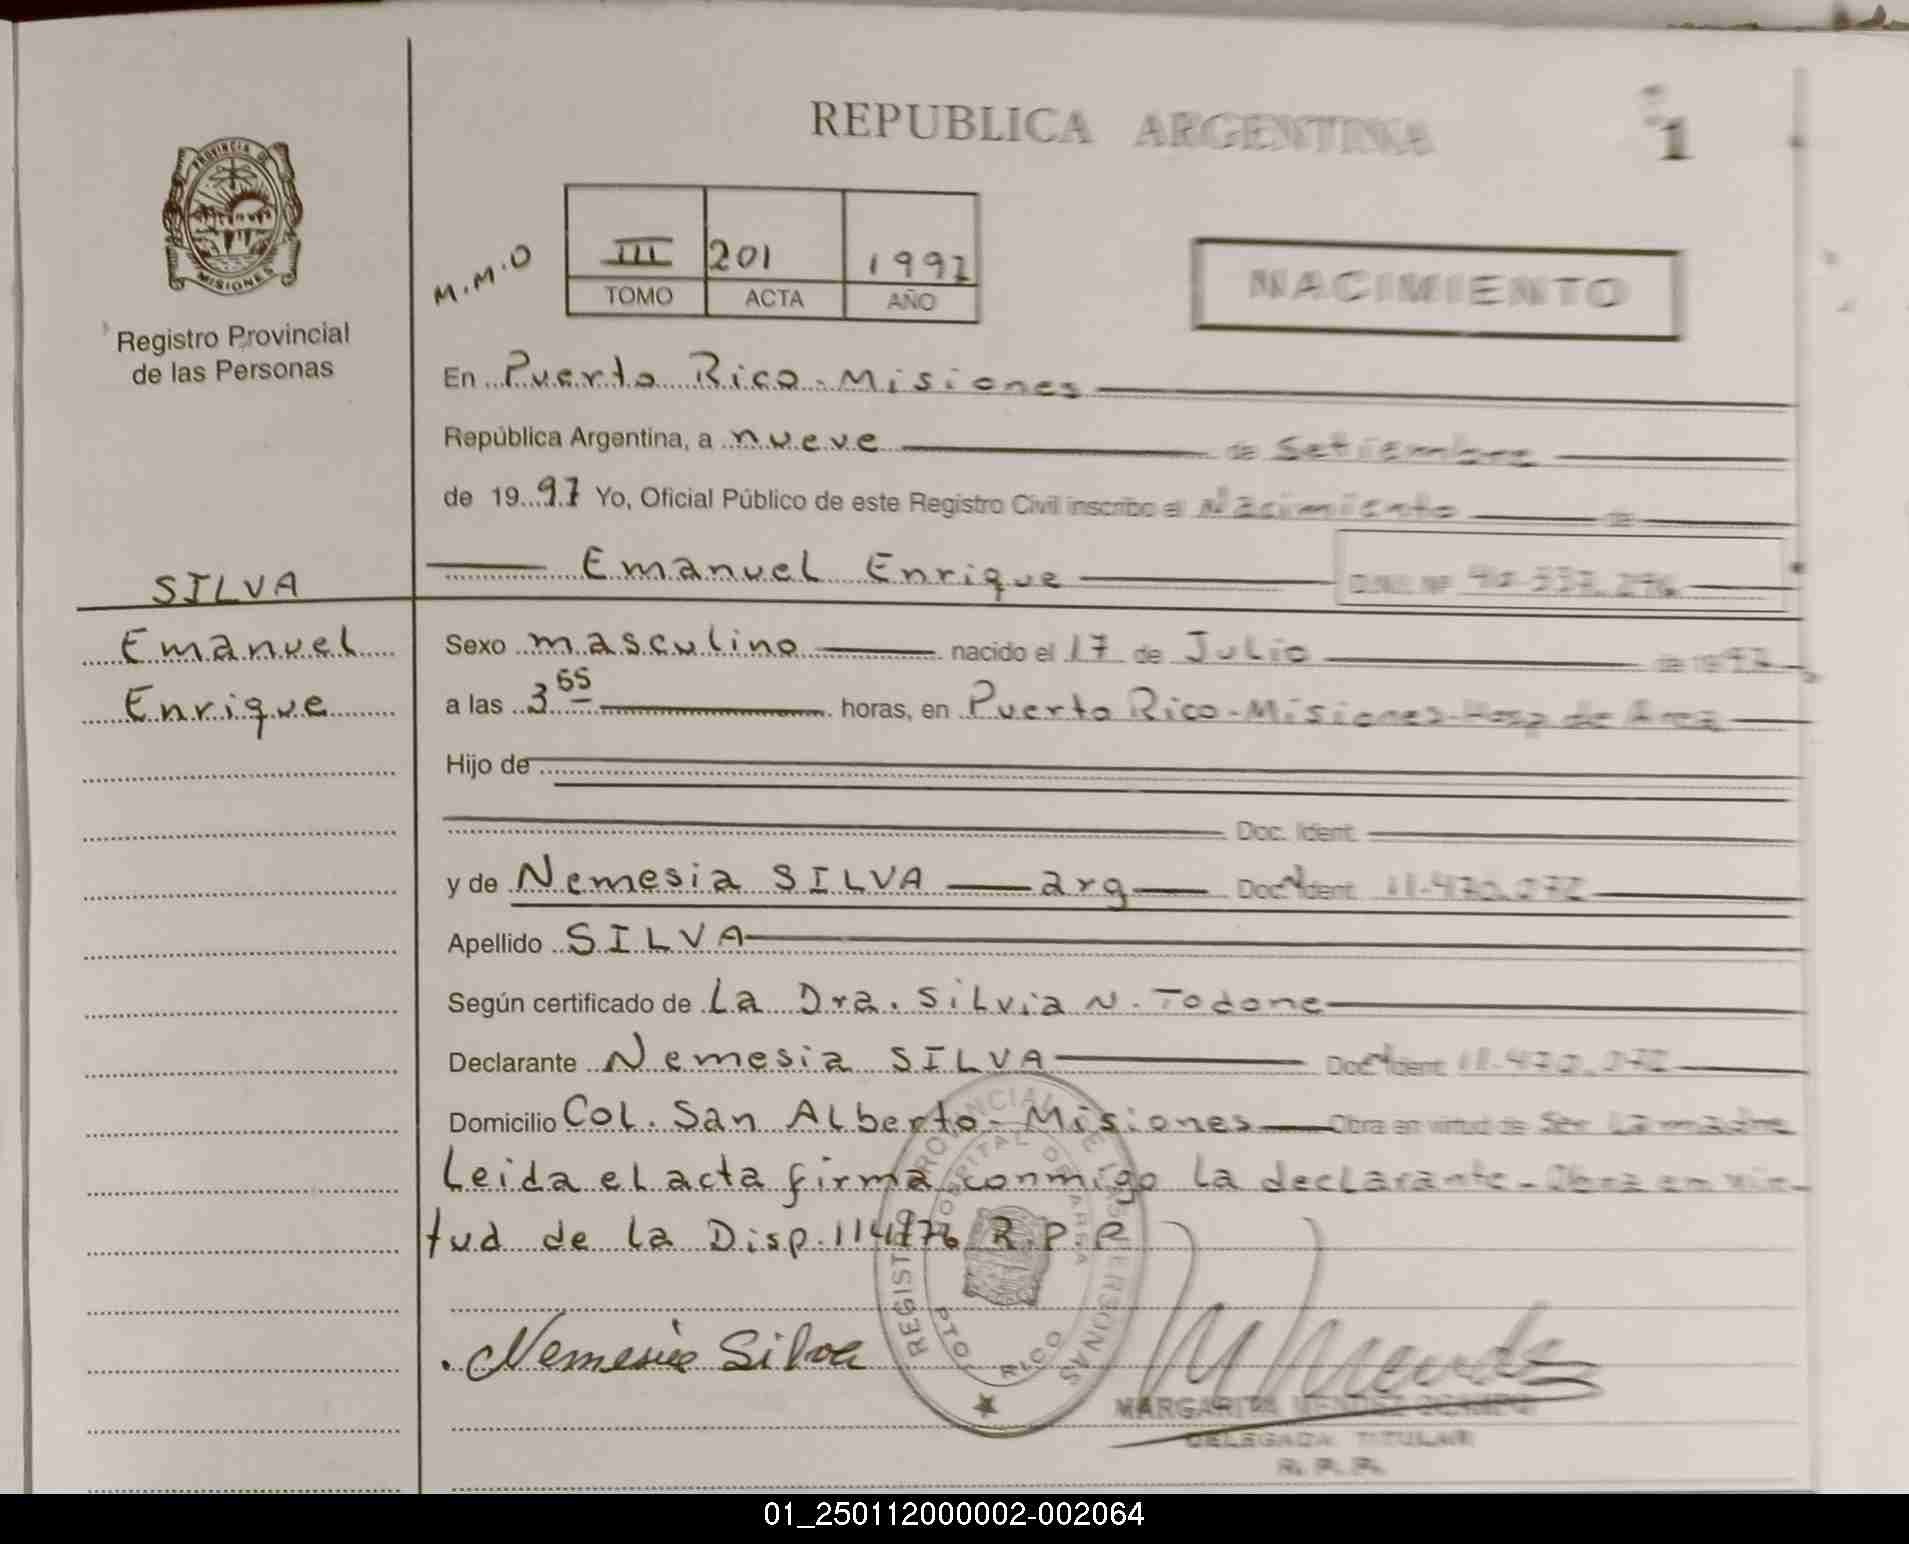 REPUBLICA ARGENTINA
1
PROVINCIA DE
MISIONES
Registro Provincial
de las Personas
M.M.O
III 201 1997
TOMO ACTA AÑO
NACIMIENTO
En Puerto Rico-Misiones
República Argentina, a nueve de Setiembre
de 1997 Yo, Oficial Público de este Registro Civil inscribo el Nacimiento de
Emanuel Enrique D.N.I. Nº
SILVA
Emanuel
Enrique
Sexo masculino nacido el 17 de Julio de 1997
a las 3 55 horas, en Puerto Rico-Misiones-Hosp de Area
Hijo de
Doc. Ident.
y de Nemesia SILVA arg Doc. Ident.
Apellido SILVA
Según certificado de La Dra. Silvia N. Todone
Declarante Nemesia SILVA Doc. Ident.
Domicilio Col. San Alberto-Misiones Obra en virtud de Ser La madre
Leida el acta firma conmigo la declarante-Obra en vir-
tud de la Disp. R.P.P
Nemesia Silva
REGISTRO PROVINCIAL DE LAS PERSONAS
HOSPITAL DE AREA
PTO. RICO
MARGARITA MENDEZ OCAMPO
DELEGADA TITULAR
R. P. P.
01_250112000002-002064